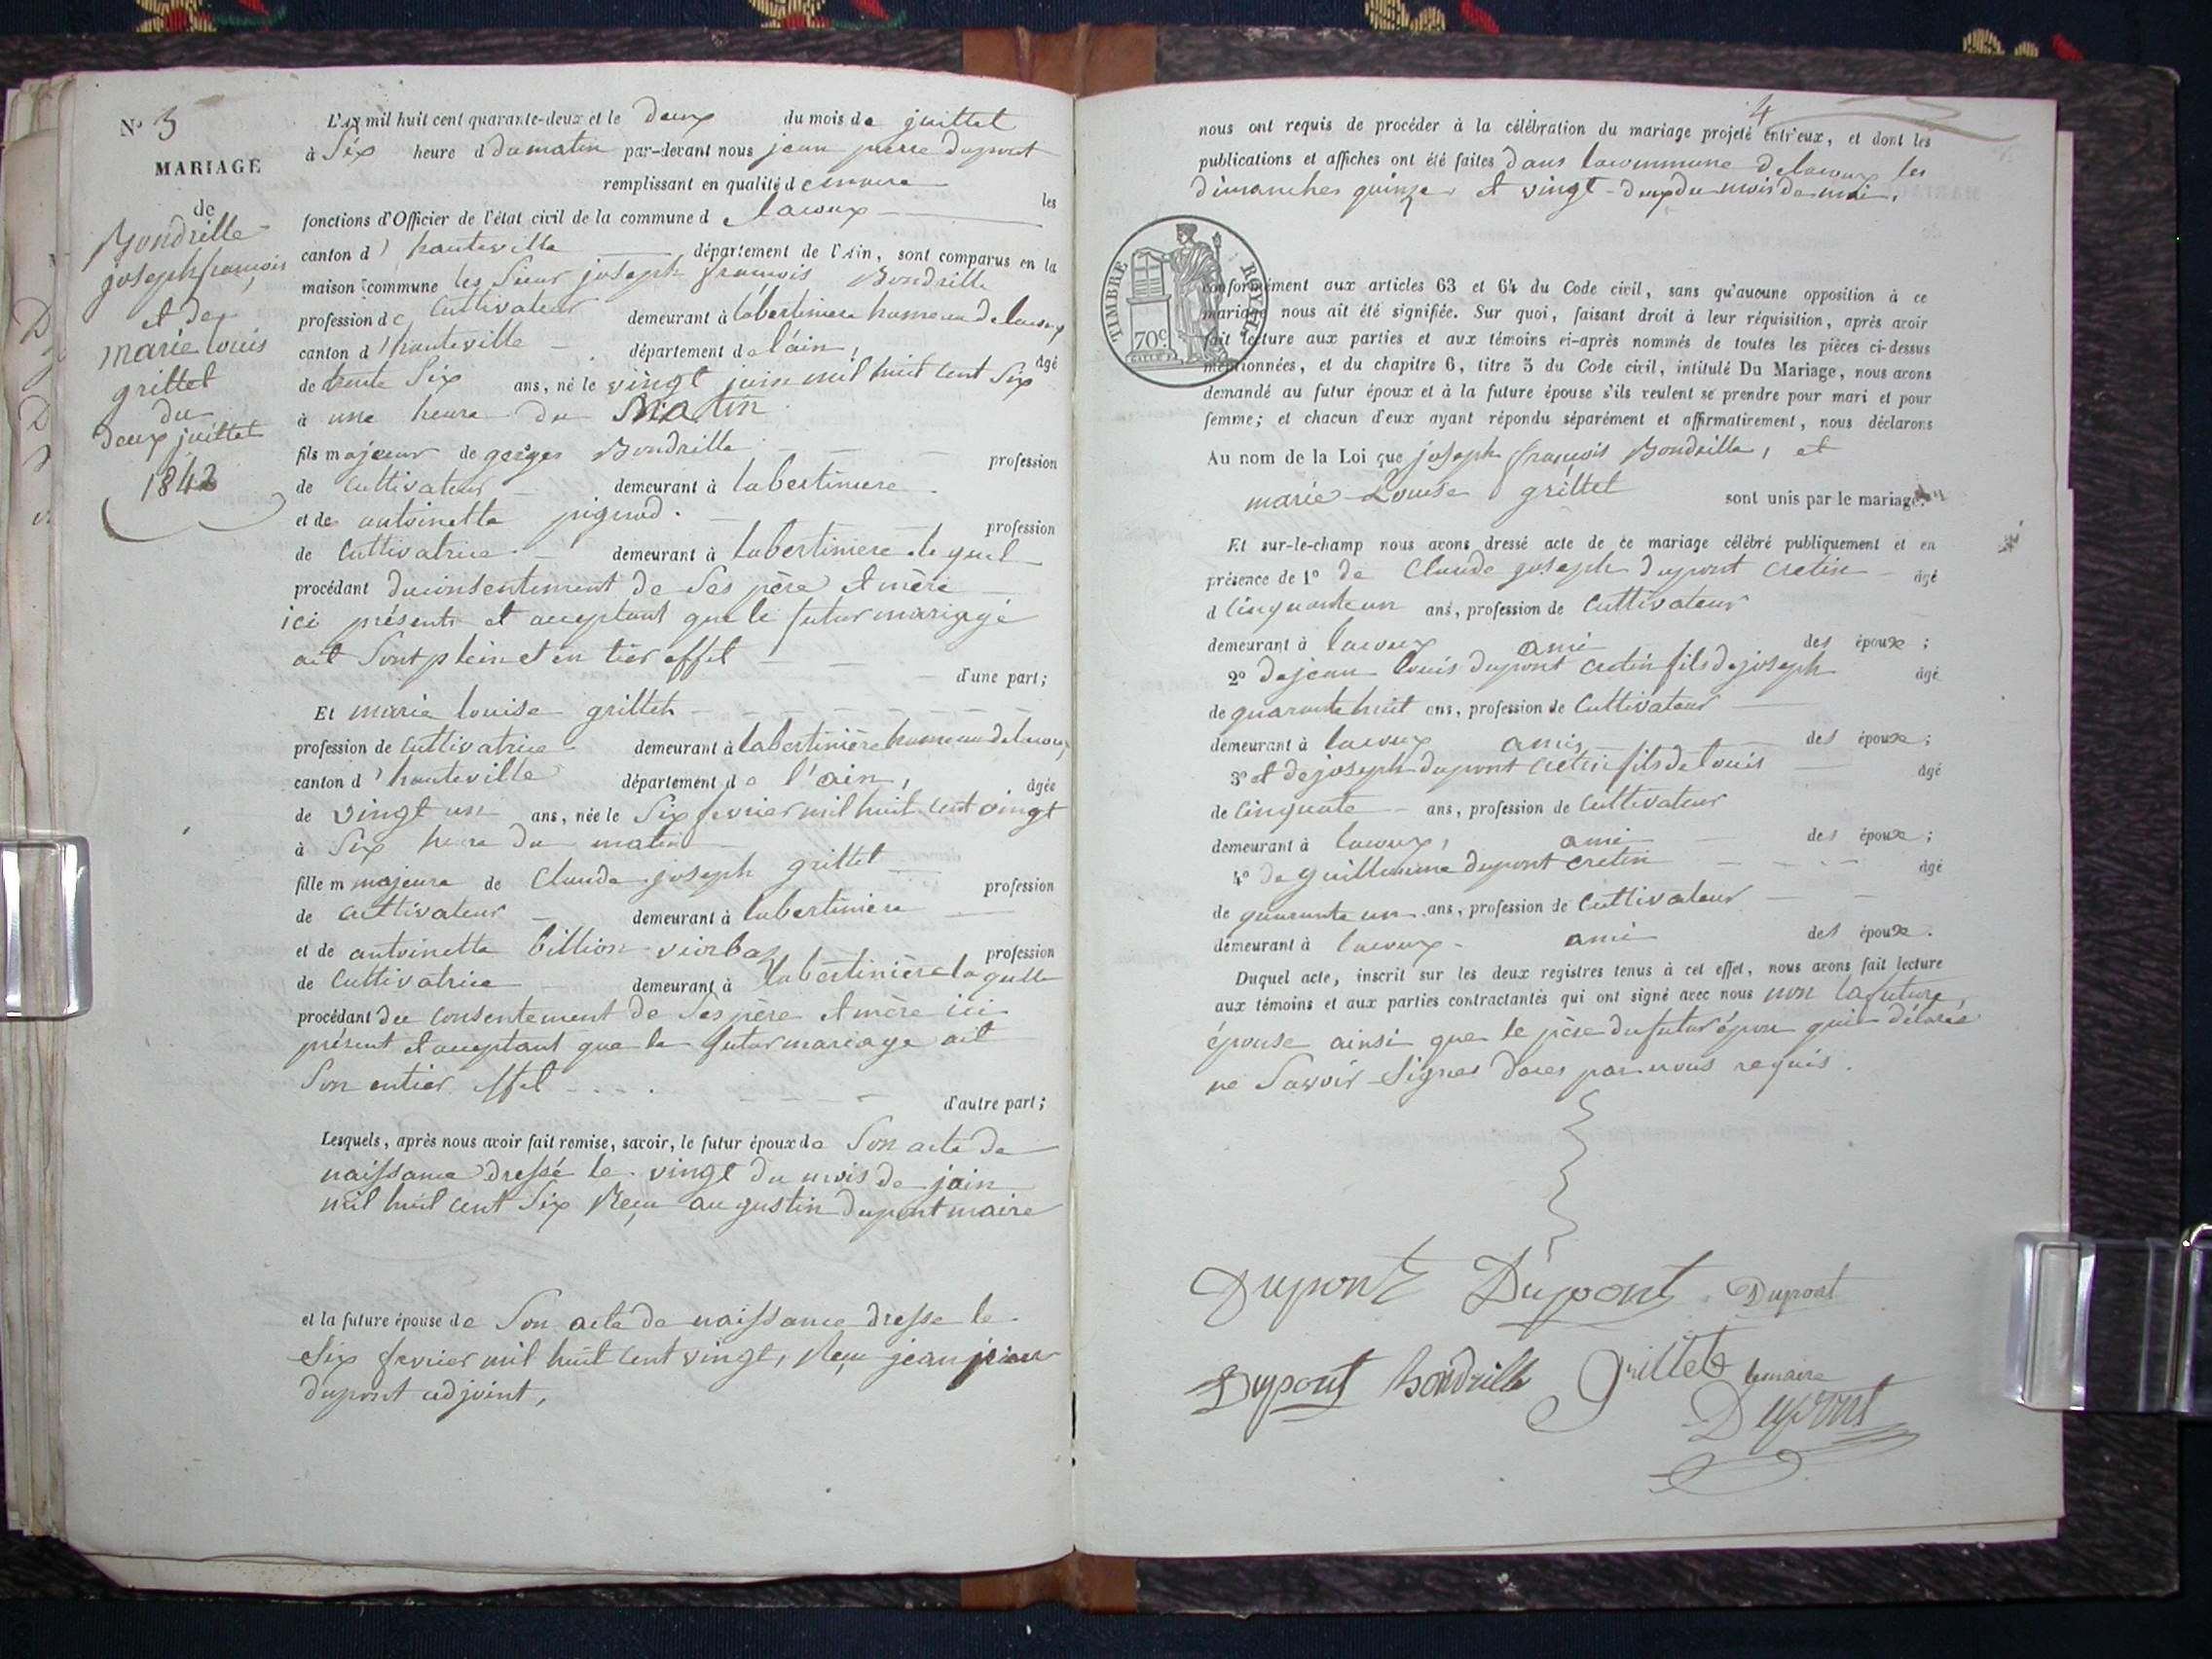 N° 3
MARIAGE
de
Bondrille
joseph françois
et de
marie louis
grillet
du
deux juillet
1842
L'An mil huit cent quarante-deux et le deux du mois de juillet
à Six heure d du matin par-devant nous jean pierre dupont
remplissant en qualité d les
fonctions d'Officier de l'état civil de la commune d e lacoux
canton d' hauteville département de l'Ain, sont comparus en la
maison commune les Sieur joseph françois Bondrille
profession de Cultivateur demeurant à labertiniere hameau de lacoux
canton d' hauteville département de l'ain, âgé
de trente Six ans, né le vingt juin mil huit cent Six
à une heure du Matin
fils majeur de georges Bondrille profession
de Cultivateur demeurant à labertiniere
et de antoinette pignod profession
de Cultivatrice demeurant à labertiniere le quel
procédant du consentement de Ses père et mère
ici présents et acceptant que le futur mariage
ait Sont plein et en tier effet
d'une part;
Et marie louise grillet
profession de Cultivatrice demeurant à labertinière hameau de lacoux
canton d' hauteville département de l'ain, âgée
de vingt un ans, née le Six fevrier mil huit cent vingt
à Six heure du matin
fille m majeure de Claude joseph grillet profession
de Cultivateur demeurant à labertiniere
et de antoinette billion profession
de Cultivatrice demeurant à labertinière la quelle
procédant du consentement de Ses père et mère ici
présent et acceptant que le futur mariage ait
Son entier effet
d'autre part;
Lesquels, après nous avoir fait remise, savoir, le futur époux de Son acte de
naissance dressé le vingt du mois de juin
mil huit cent Six Reçu augustin dupont maire
et la future épouse de Son acte de naissance dresse le
Six fevrier mil huit cent vingt, Reçu jean pierre
dupont adjoint,
4
nous ont requis de procéder à la célébration du mariage projeté entr'eux, et dont les
publications et affiches ont été faites dans la commune de lacoux les
dimanches quinze et vingt-deux du mois de mai,
TIMBRE ROYAL
70c
conformément aux articles 63 et 64 du Code civil, sans qu'aucune opposition à ce
mariage nous ait été signifiée. Sur quoi, faisant droit à leur réquisition, après avoir
fait lecture aux parties et aux témoins ci-après nommés de toutes les pièces ci-dessus
mentionnées, et du chapitre 6, titre 5 du Code civil, intitulé Du Mariage, nous avons
demandé au futur époux et à la future épouse s'ils veulent se prendre pour mari et pour
femme; et chacun d'eux ayant répondu séparément et affirmativement, nous déclarons
Au nom de la Loi que joseph françois Bondrille, et
marie Louise grillet sont unis par le mariage.
Et sur-le-champ nous avons dressé acte de ce mariage célébré publiquement et en
présence de 1° de Claude joseph dupont cretin âgé
d Cinquante un ans, profession de Cultivateur
demeurant à lacoux ami des époux;
2° de jean louis dupont cretin fils de joseph âgé
de quarante huit ans, profession de Cultivateur
demeurant à lacoux ami des époux;
3° et de joseph dupont cretin fils de louis âgé
de Cinquate ans, profession de Cultivateur
demeurant à lacoux, ami des époux;
4° de guillaume dupont cretin âgé
de quarante un ans, profession de Cultivateur
demeurant à lacoux ami des époux.
Duquel acte, inscrit sur les deux registres tenus à cet effet, nous avons fait lecture
aux témoins et aux parties contractantes qui ont signé avec nous non la future,
épouse ainsi que le père du futur époux qui
ne Savoir Signer par nous requis.
Dupont Dupont Dupont
Dupont bondrille grillet le maire
Dupont